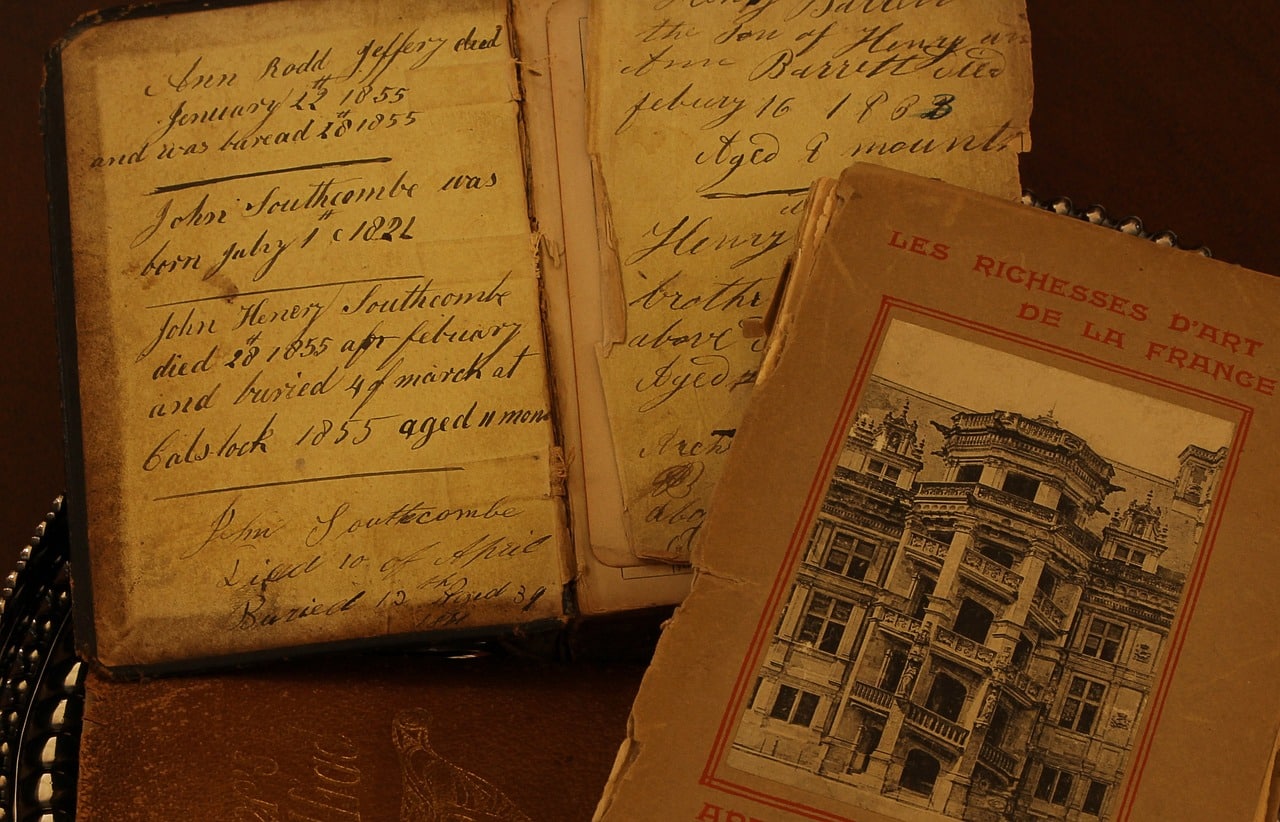 Ann Rodd Jeffery died
Jenuary 22th 1855
and was buread 28th 1855
John Southcombe was
born July 1th c 1821
John Henery Southcombe
died 28th 1855 apr febuary
and buried 4 of march at
Calstock 1855 aged 11 mon
John Southcombe
Died 10 of April
Buried 13th Aged 39
Henry Barrett
the Son of Henry an
Ann Barrett died
febury 16 1883
Aged 9 mounts
Henry
brothe
above
Aged
abo
LES RICHESSES D'ART
DE LA FRANCE